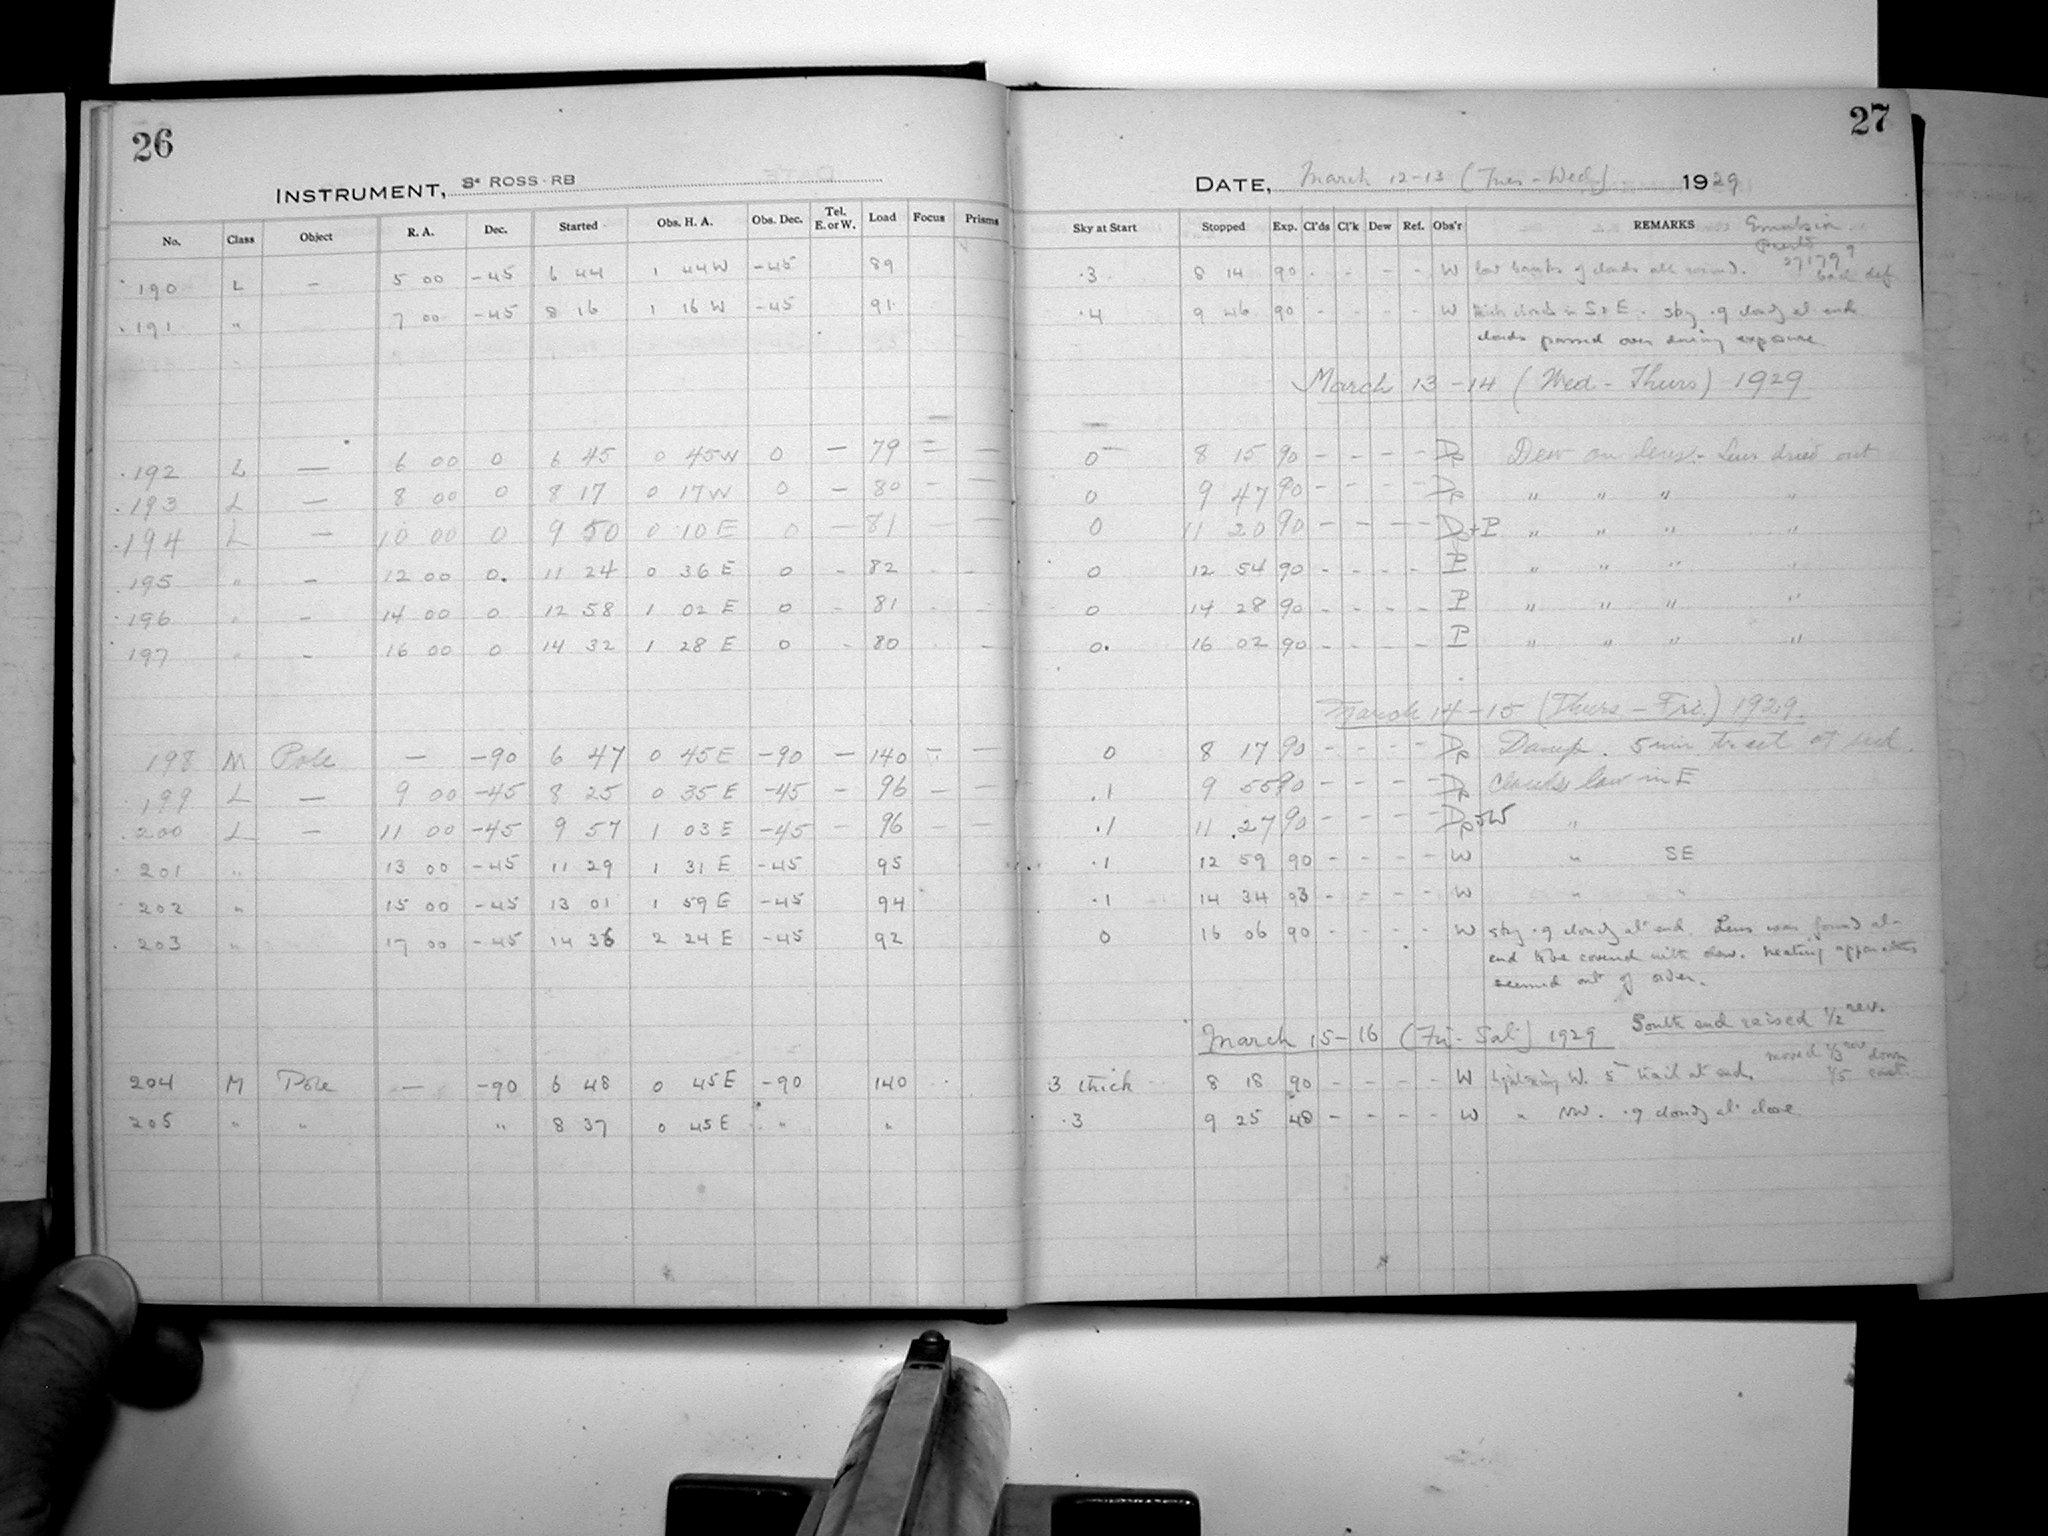 26
INSTRUMENT, 3" ROSS-RB
No. Class Object R. A. Dec. Started Obs. H. A. Obs. Dec. Tel. E. or W. Load Focus Prisms
190 L — 5 00 -45 6 44 1 44 W -45 89
191 " 7 00 -45 8 16 1 16 W -45 91
192 L — 6 00 0 6 45 0 45 W 0 — 79 = —
193 L — 8 00 0 8 17 0 17 W 0 — 80 — —
194 L — 10 00 0 9 50 0 10 E 0 — 81 — —
195 " — 12 00 0. 11 24 0 36 E 0 - 82 - -
196 " — 14 00 0 12 58 1 02 E 0 - 81 - -
197 " — 16 00 0 14 32 1 28 E 0 - 80 - -
198 M Pole — -90 6 47 0 45 E -90 — 140 — —
199 L — 9 00 -45 8 25 0 35 E -45 — 96 — —
200 L — 11 00 -45 9 57 1 03 E -45 — 96 — —
201 " 13 00 -45 11 29 1 31 E -45 95
202 " 15 00 -45 13 01 1 59 E -45 94
203 " 17 00 -45 14 36 2 24 E -45 92
204 M Pole — -90 6 48 0 45 E -90 140
205 " " " 8 37 0 45 E " "
27
DATE, March 12-13 (Tues-Wed) 1929
Sky at Start Stopped Exp. Cl'ds Cl'k Dew Ref. Obs'r REMARKS Emulsion
.3 8 14 90 - - - - W low banks of clouds all round. 271799
.4 9 46 90 - - - - W thick clouds in S & E. sky .9 cloudy at end
clouds passed over during exposure
March 13-14 (Wed-Thurs) 1929
0 8 15 90 - - - - Dp Dew on lens - Lens dried out
0 9 47 90 - - - - Dp " " " "
0 11 20 90 - - - - D+P " " " "
0 12 54 90 - - - - P " " " "
0 14 28 90 - - - - P " " " "
0. 16 02 90 - - - - P " " " "
March 14-15 (Thurs-Fri.) 1929.
0 8 17 90 - - - - Dp Damp. 5 min at end
.1 9 55 90 - - - - Dp Clouds low in E
.1 11 27 90 - - - - Dp+W "
.1 12 59 90 - - - - W " SE
.1 14 34 93 - - - - W " "
0 16 06 90 - - - - W sky .9 cloudy at end. Lens was found at
end to be covered with dew. heating apparatus
seemed out of order.
March 15-16 (Fri-Sat) 1929 South end raised 1/2 rev.
moved 1/3 rev down
1/5 east.
3 thick 8 18 90 - - - - W lightning W. 5m trail at end.
.3 9 25 48 - - - - W " NW. .9 cloudy at close